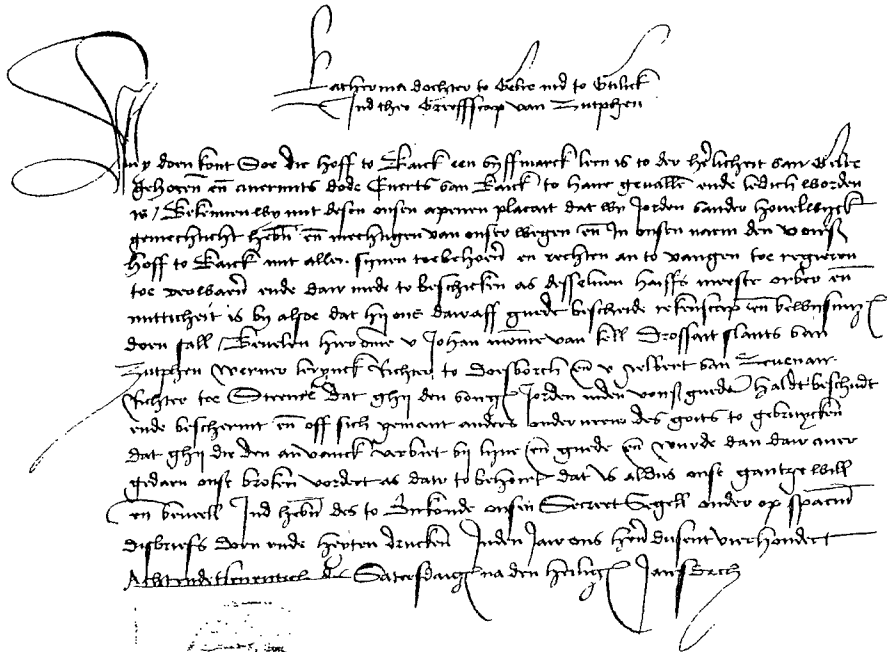 Katherina dochter to Gelre ind to Guilick
Ind ther Greeffscap van Zutphen
Wy doen kont Soe die hoff to Baick een dyffmarck leen is to der herlicheit van Gelre
gehoeren en auermits dode Euerts van Baick to hant geuallen ende ledich worden
is / Bekennen wy mit desen onsen apenen placait dat wy Jorden vander Houelwyck
gemechticht hebn en mechtigen van onser wegen en In onsen naem den vors
hoff to Baick mit allen synen toebehoeren en rechten an to vangen toe regieren
toe verwaren ende dair mede to beschicken as desseluen haiffs meeste orber en
nutticheit is by alsoe dat hij ons dairaff guede bescheide rekenscap en bewysinge
doen sall / Beuelen hieromme v Johan van Kell Drossait slants van
Zutphen Werner Richter to Doesborch en v van Zeuenair
Richter toe Steenre dat ghij den vors Jorden inden vors guede haldt beschudt
ende beschermt en off sich yemant anders onderneem des goits to gebruycken
dat ghij die den anvanck verbiet bij lyue en guede en wurde dan dair auer
gedaen onse broken vordert as dair to behoirt dat is aldus onse gantze will
en beueell Ind hebn des to Oirkonde onsen Secreet Segell onder op spacium
disbriefs doen ende heyten drucken Inden Jair ons hern dusent vierhondert
Achtendetseuentich des Satersdaigs na den heiligen